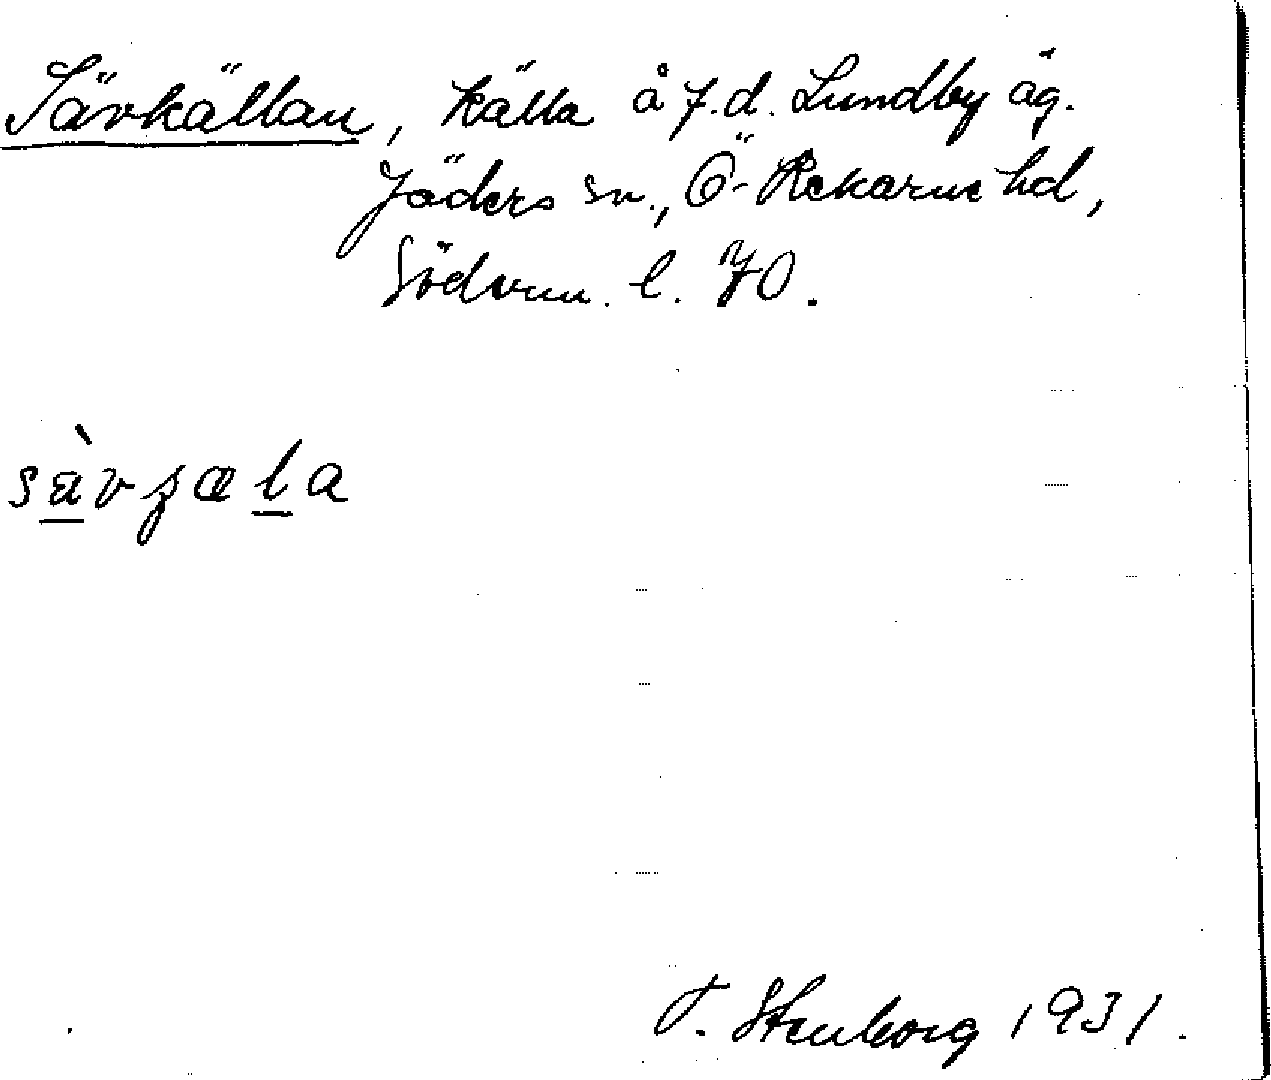 Sävkällan, källa å f.d. Lundby äg.
Jäders sn., Ö-Rekarne hd,
Södvm. l. 70.
sàvȥæla
T. Stenborg 1931.